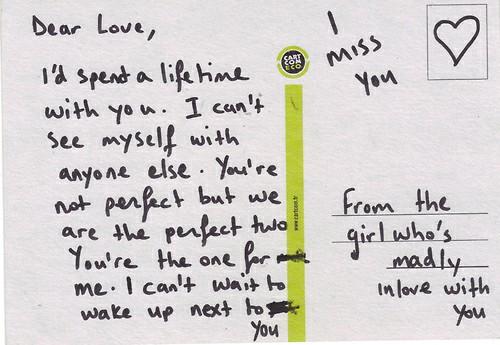 Dear Love,
I'd spent a lifetime
with you. I can't
see myself with
anyone else. You're
not perfect but we
are the perfect two
You're the one for
me. I can't wait to
wake up next to
You
CART
CON
ECO
www.cartcon.tr
I
miss
you
From the
girl who's
madly
inlove with
you